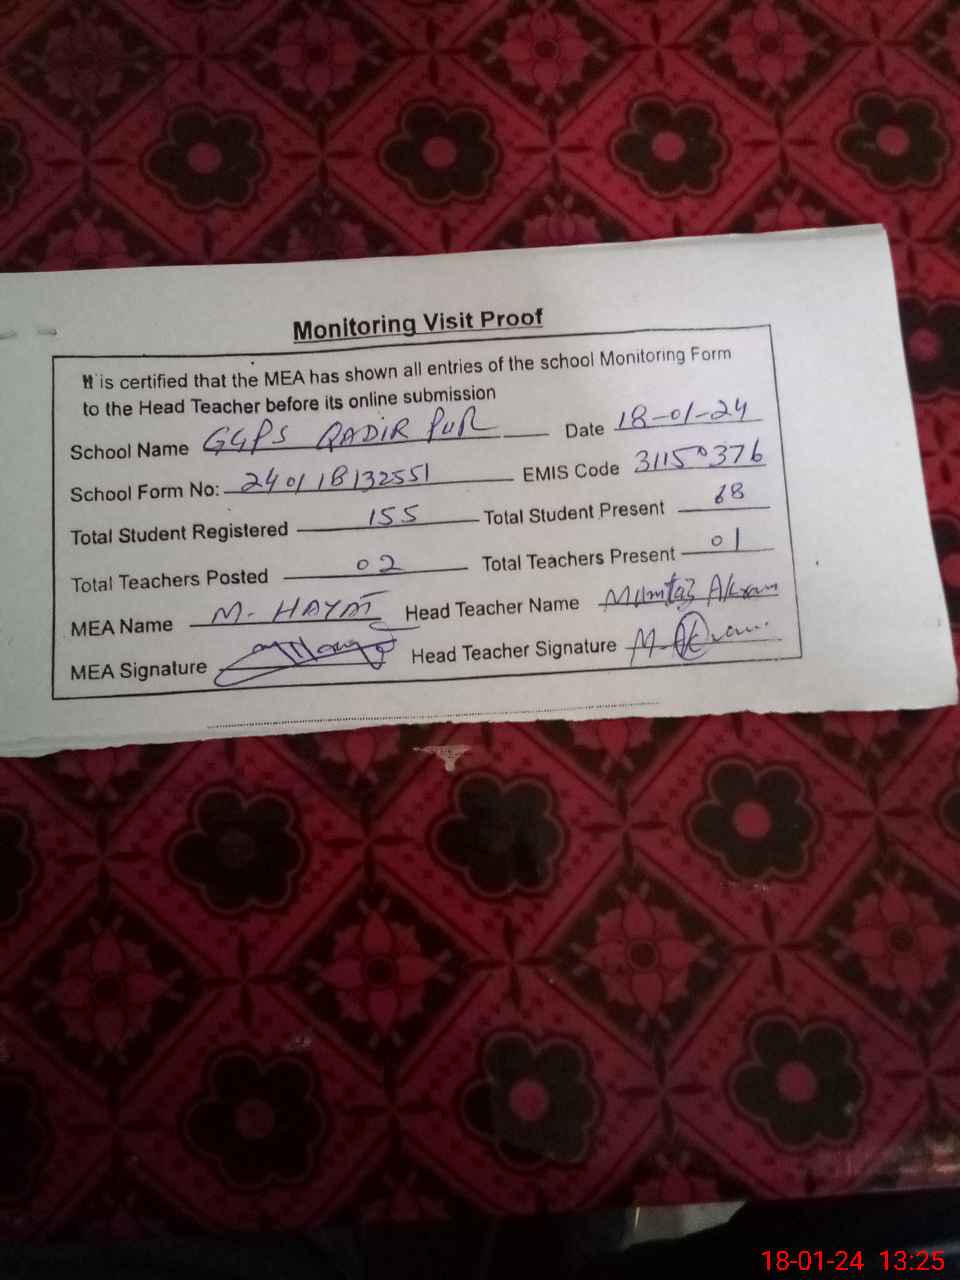 Monitoring Visit Proof
It is certified that the MEA has shown all entries of the school Monitoring Form
to the Head Teacher before its online submission
School Name GGPS QADIR PUR Date 18-01-24
School Form No: 240118132551 EMIS Code 31150376
Total Student Registered 155 Total Student Present 68
Total Teachers Posted 02 Total Teachers Present 01
MEA Name M. HAYAT Head Teacher Name Mumtaz Akram
MEA Signature Head Teacher Signature M. Akram
18-01-24 13:25